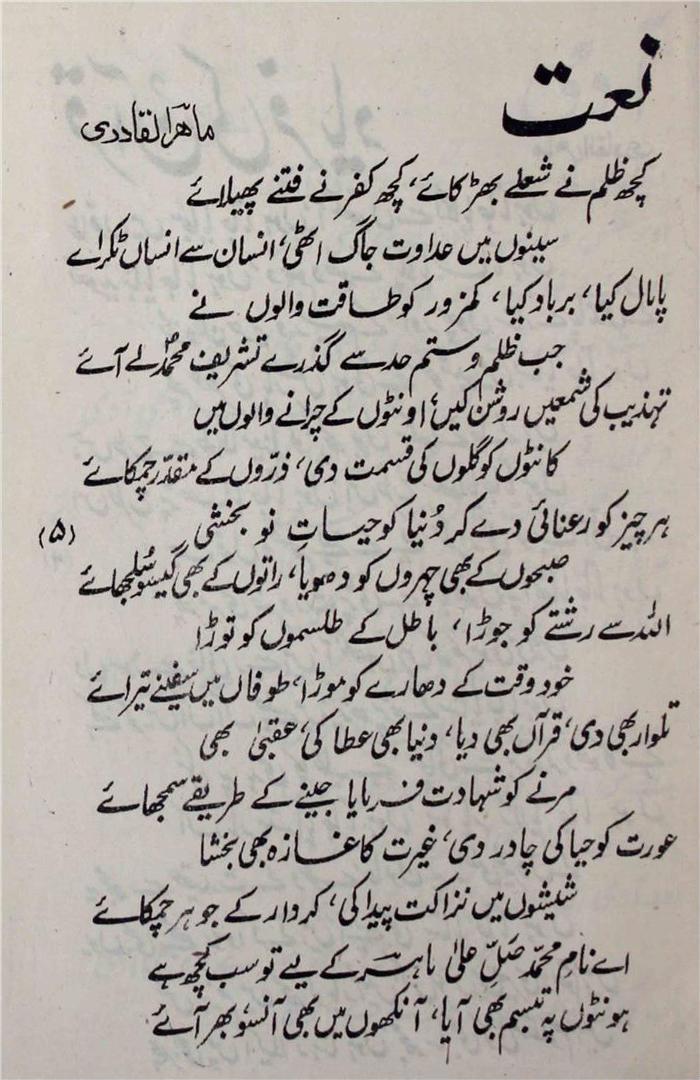 نعت
ماہر القادری
کچھ ظلم نے شعلے بھڑکائے، کچھ کفر نے فتنے پھیلائے
سینوں میں عداوت جاگ اٹھی، انسان سے انساں ٹکرائے
پامال کیا، برباد کیا، کمزور کو طاقت والوں نے
جب ظلم و ستم حد سے گذرے تشریف محمدؐ لے آئے
تہذیب کی شمعیں روشن کیں، اونٹوں کے چرانے والوں میں
کانٹوں کو گلوں کی قسمت دی، ذرّوں کے مقدّر چمکائے
ہر چیز کو رعنائی دے کر دُنیا کو حیاتِ نو بخشی (۵)
صبحوں کے بھی چہروں کو دھویا، راتوں کے بھی گیسو سُلجھائے
اللہ سے رشتے کو جوڑا، باطل کے طلسموں کو توڑا
خود وقت کے دھارے کو موڑا، طوفاں میں سفینے تیرائے
تلوار بھی دی، قرآں بھی دیا، دنیا بھی عطا کی، عقبیٰ بھی
مرنے کو شہادت فرمایا جینے کے طریقے سمجھائے
عورت کو حیا کی چادر دی، غیرت کا غازہ بھی بخشا
شیشوں میں نزاکت پیدا کی، کردار کے جوہر چمکائے
اے نامِ محمّد صَلِّ علیٰ ماہرؔ کے لیے تو سب کچھ ہے
ہونٹوں پہ تبسم بھی آیا، آنکھوں میں بھی آنسو بھر آئے